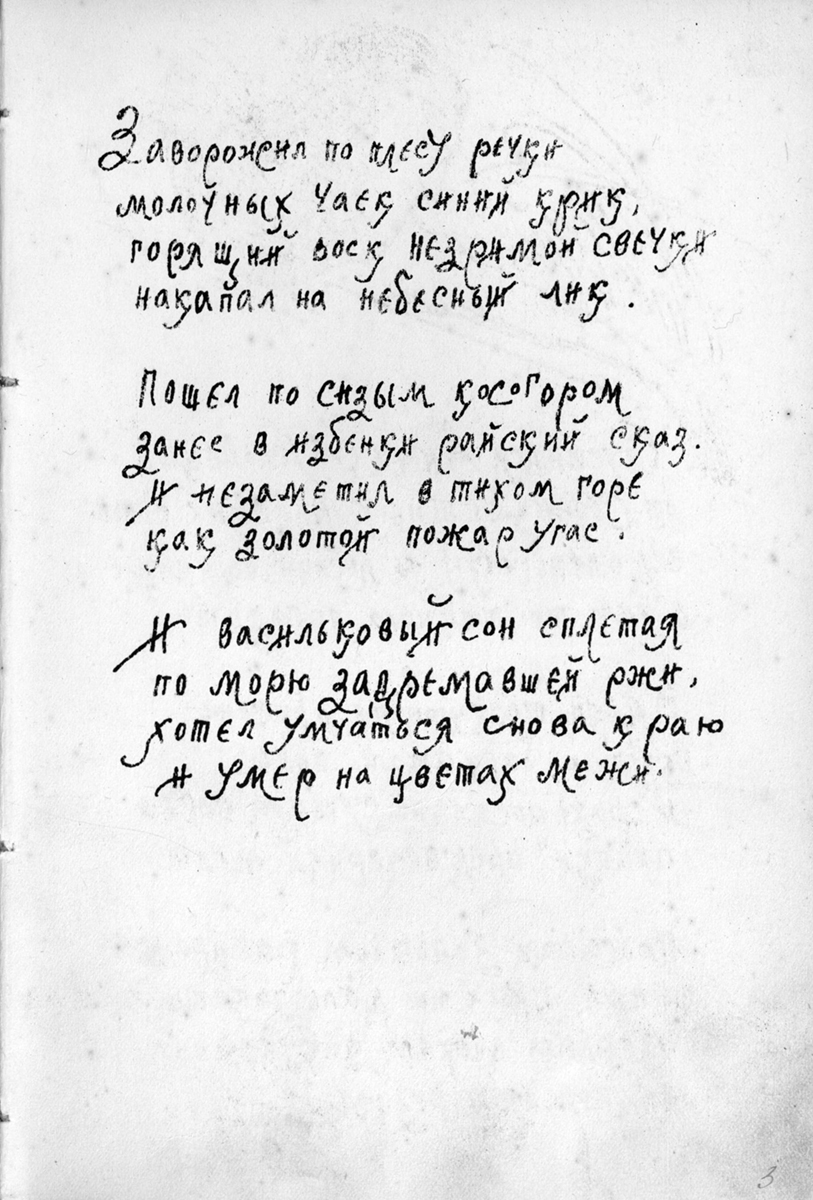 Заворожил по плесу речки
молочных чаек синий крик,
горящий воск незримой свечки
накапал на небесный лик.
Пошел по сизым косогором
занес в избенки райский сказ.
И незаметил в тихом горе
как золотой пожар угас.
И васильковый сон сплетая
по морю задремавшей ржи,
хотел умчаться снова к раю
и умер на цветах межи.
3